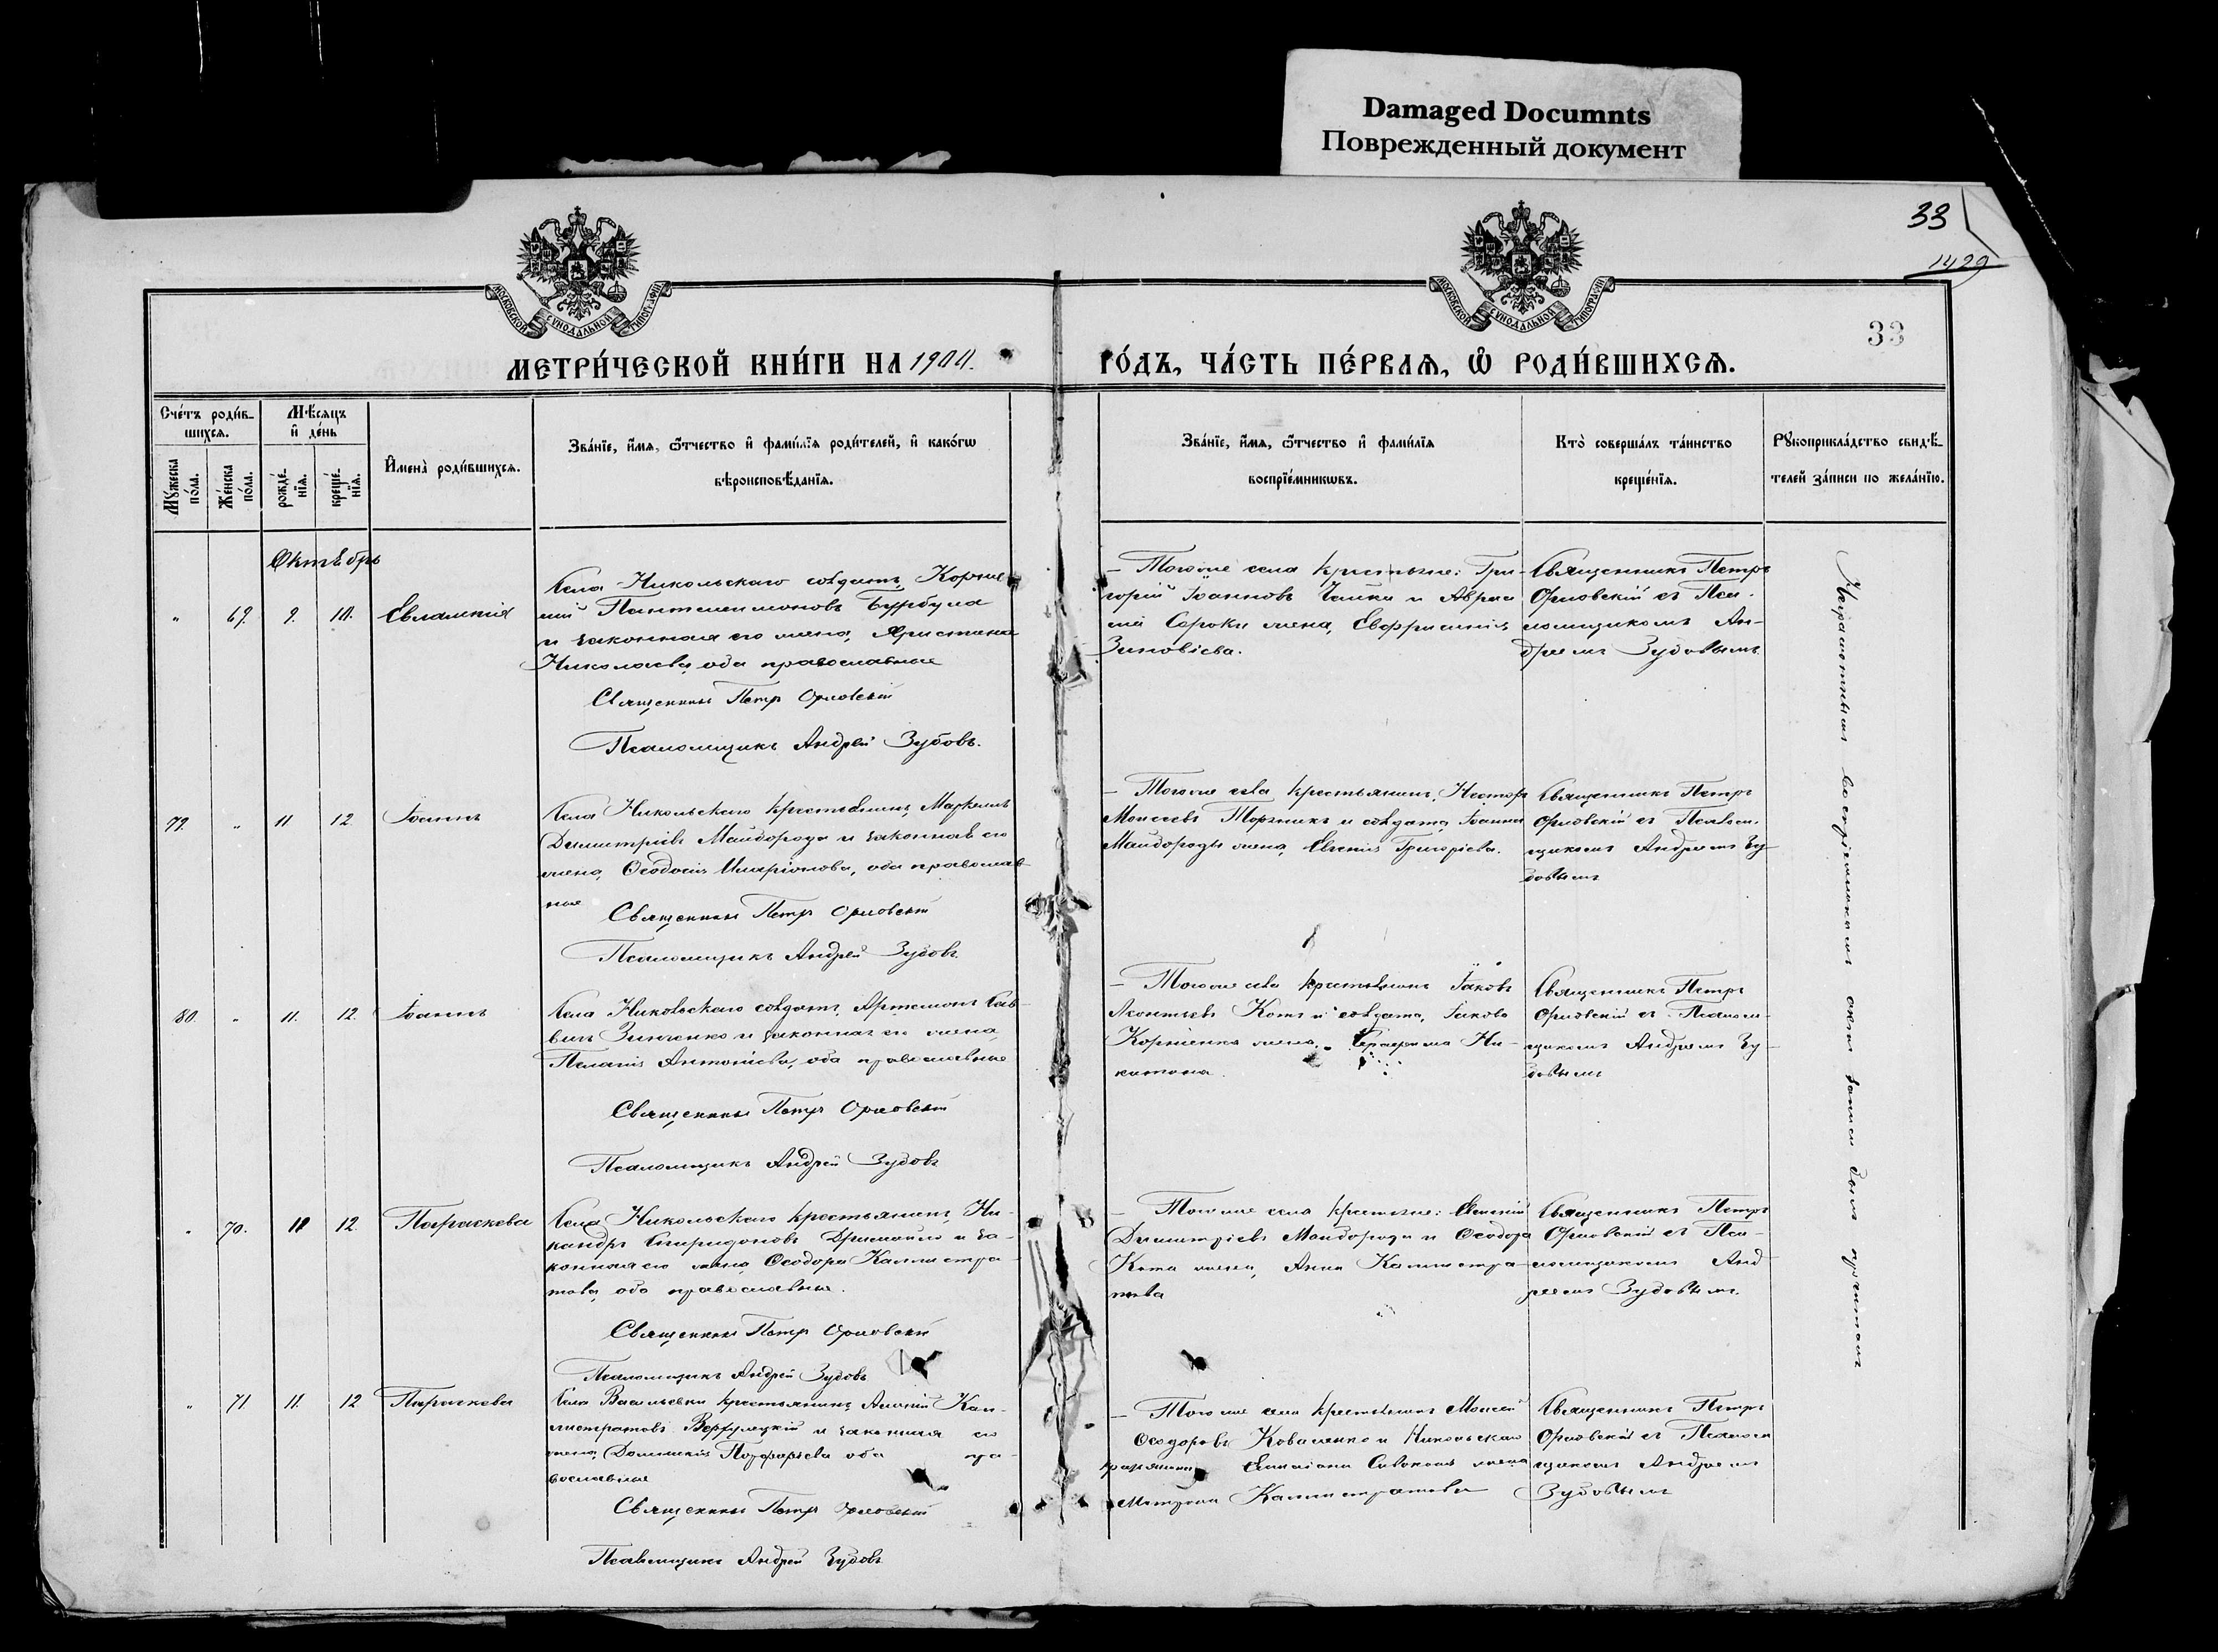 Damaged Documnts
Поврежденный документ
33
1429
33
МОСКОВСКОЙ СУНОДАЛЬНОЙ ТИПОГРАФІИ
МОСКОВСКОЙ СУНОДАЛЬНОЙ ТИПОГРАФІИ
МЕТРИ́ЧЕСКОЙ КНИ́ГИ НА 1900. ГО́ДЪ, ЧА́СТЬ ПЕ́РВАѦ, Ѡ РОДИ́ВШИХСѦ.
Сче́тъ роди́в-
шихсѧ.
Мꙋ́жеска по́ла.
Же́нска по́ла.
Мѣ́сѧцъ
и҆ де́нь
рожде́-
нїѧ.
креще́-
нїѧ.
И҆мена̀ роди́вшихсѧ.
Зва́нїе, и҆́мѧ, ѻ҆́тчество и҆ фами́лїѧ роди́телей, и҆ како́гѡ
вѣроисповѣ́данїѧ.
Зва́нїе, и҆́мѧ, ѻ҆́тчество и҆ фами́лїѧ
воспрїе́мникѡвъ.
Кто̀ соверша́лъ та́инство
креще́нїѧ.
Рꙋкоприкла́дство свидѣ́-
телей за́писи по жела́нїю.
Октябрь
" 69. 9. 10. Евлампія
Села Никольскаго солдатъ, Корни-
лій Пантелеимоновъ Бурбула
и законная его жена, Христина
Николаева, оба православные
Священникъ Петръ Орловскій
Псаломщикъ Андрей Зубовъ.
– Того же села крестьяне: Гри-
горій Іоанновъ Чайка и Авраа-
мія Сороки жена, Евфросинія
Зиновіева.
Священникъ Петръ
Орловскій съ Пса-
ломщикомъ Ан-
дреемъ Зубовымъ.
79. " 11. 12. Іоаннъ
Села Никольскаго крестьянинъ, Маркеллъ
Димитріевъ Майборода и законная его
жена, Ѳеодосія Иларіонова, оба православ-
ные
Священникъ Петръ Орловскій
Псаломщикъ Андрей Зубовъ
– Того же села крестьянинъ, Несторъ
Моисеевъ и солдата, Іоанна
Майбороды жена, Евгенія Григоріева.
Священникъ Петръ
Орловскій съ Псалом-
щикомъ Андреемъ Зу-
бовымъ
80. " 11. 12. Іоаннъ
Села Никольскаго солдатъ, Артемонъ Сав-
винъ Зинченко и законная его жена,
Пелагія Антоніева, оба православные
Священникъ Петръ Орловскій
Псаломщикъ Андрей Зубовъ
– Того же села крестьянинъ Іаковъ
Леонтьевъ Котъ и солдата, Іакова
Корніенка жена, Ни-
китина.
Священникъ Петръ
Орловскій съ Псалом-
щикомъ Андреемъ Зу-
бовымъ
" 70. 11 12. Параскева
Села Никольскаго крестьянинъ, Ни-
кандръ Спиридоновъ и за-
конная его жена, Ѳеодора Каллистра-
това, оба православные.
Священникъ Петръ Орловскій
Псаломщикъ Андрей Зубовъ
– Того же села крестьяне:
Димитріевъ Майборода и Ѳеодора
Кота жена, Анна Каллистра-
това
Священникъ Петръ
Орловскій съ Пса-
ломщикомъ Анд-
реемъ Зубовымъ.
" 71 11. 12 Параскева
Села Васильевки крестьянинъ Кал-
листратовъ и законная его
жена, Порфирьева оба пра-
вославные
Священникъ Петръ Орловскій
Псаломщикъ Андрей Зубовъ
– Того же села крестьянинъ Моисей
Ѳеодоровъ Коваленко и Никольскаго
жена
Матрона Каллистратова
Священникъ Петръ
Орловскій съ Псалом-
щикомъ Андреемъ
Зубовымъ
Неграмотнымъ воспріемникамъ актъ записи былъ прочитанъ